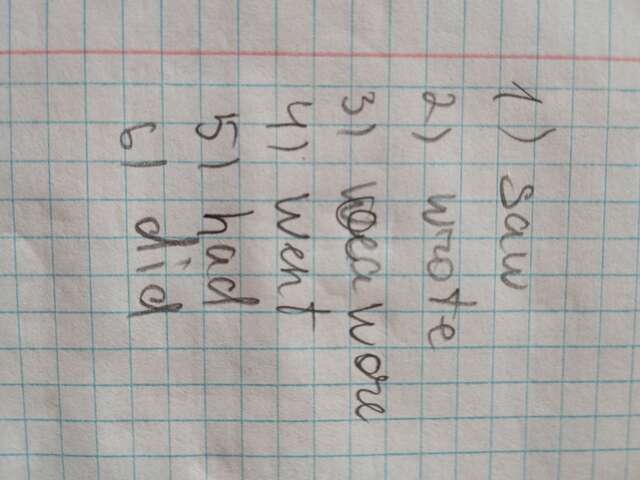 1) saw
2) wrote
3) wore
4) went
5) had
6) did